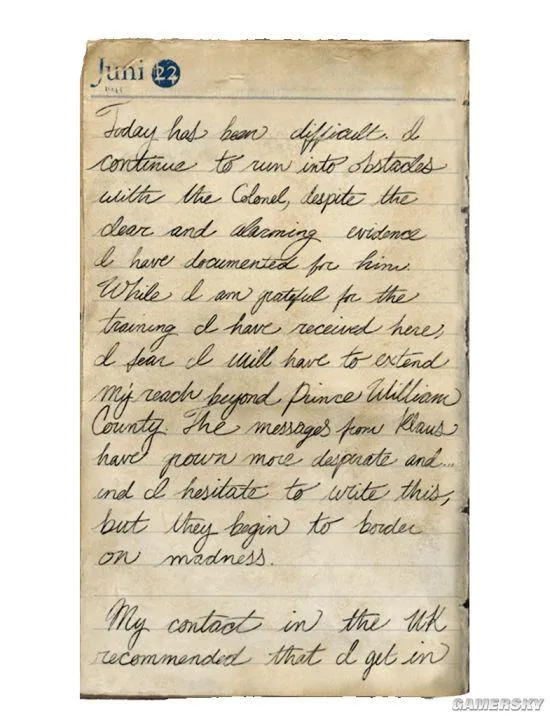 Juni 22
Today has been difficult. I
continue to run into obstacles
with the Colonel, despite the
clear and alarming evidence
I have documented for him.
While I am grateful for the
training I have received here,
I fear I will have to extend
my reach beyond Prince William
County. The messages from Klaus
have grown more desperate and...
and I hesitate to write this,
but they begin to border
on madness.
My contact in the UK
recommended that I get in
GAMERSKY